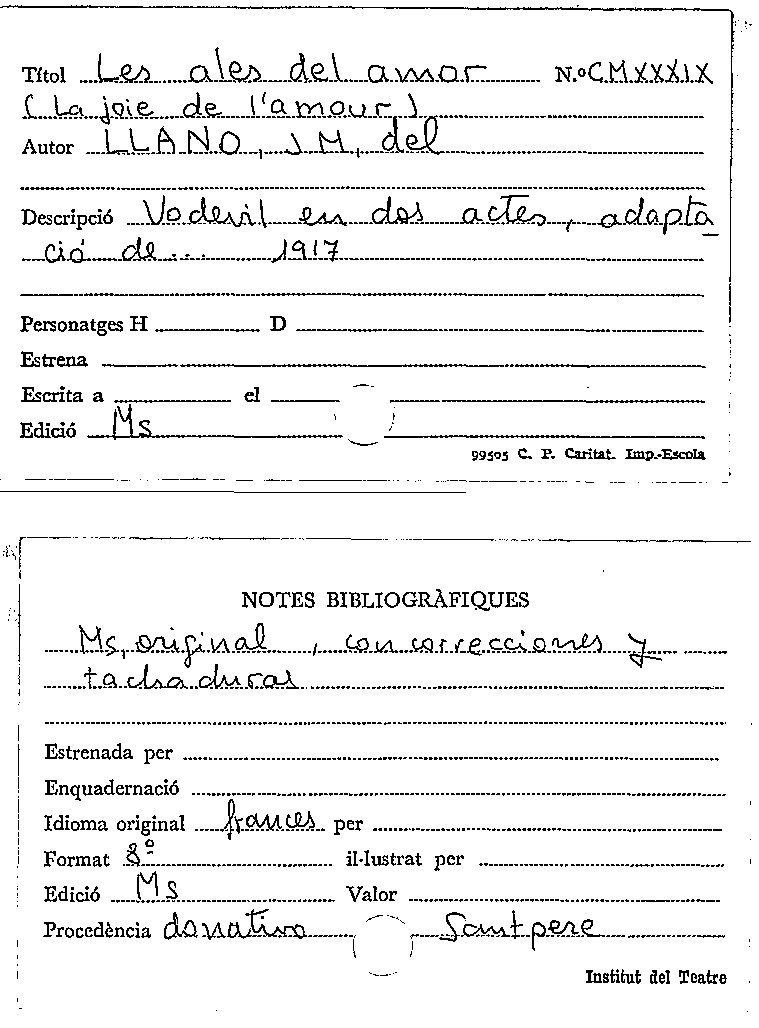 Títol Les ales del amor N.º CMXXXIX
(La joie de l'amour)
Autor LLANO, J M, del
Descripció Vodevil en dos actes, adapta
ció de... 1917
Personatges H D
Estrena
Escrita a el
Edició Ms
99505 C. P. Caritat. Imp.-Escola
NOTES BIBLIOGRÀFIQUES
Ms, original, con correcciones y
tachaduras
Estrenada per
Enquadernació
Idioma original frances per
Format 8º il·lustrat per
Edició Ms Valor
Procedència donativo Santpere
Institut del Teatre